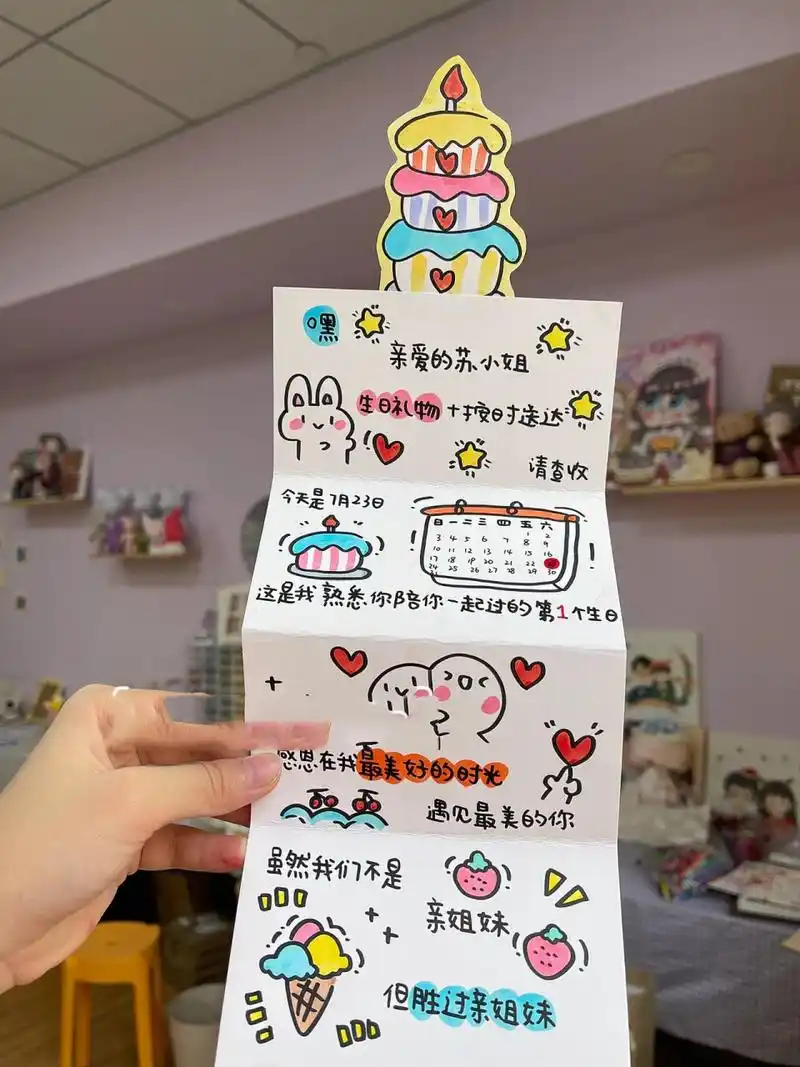 嘿
亲爱的苏小姐
生日礼物+按时送达
请查收
今天是7月23日
日 一 二 三 四 五 六
1 2
3 4 5 6 7 8 9
10 11 12 13 14 15 16
17 18 19 20 21 22
24 25 26 27 28 29 30
31
这是我熟悉你陪你一起过的第1个生日
感恩在我最美好的时光
遇见最美的你
虽然我们不是
亲姐妹
但胜过亲姐妹